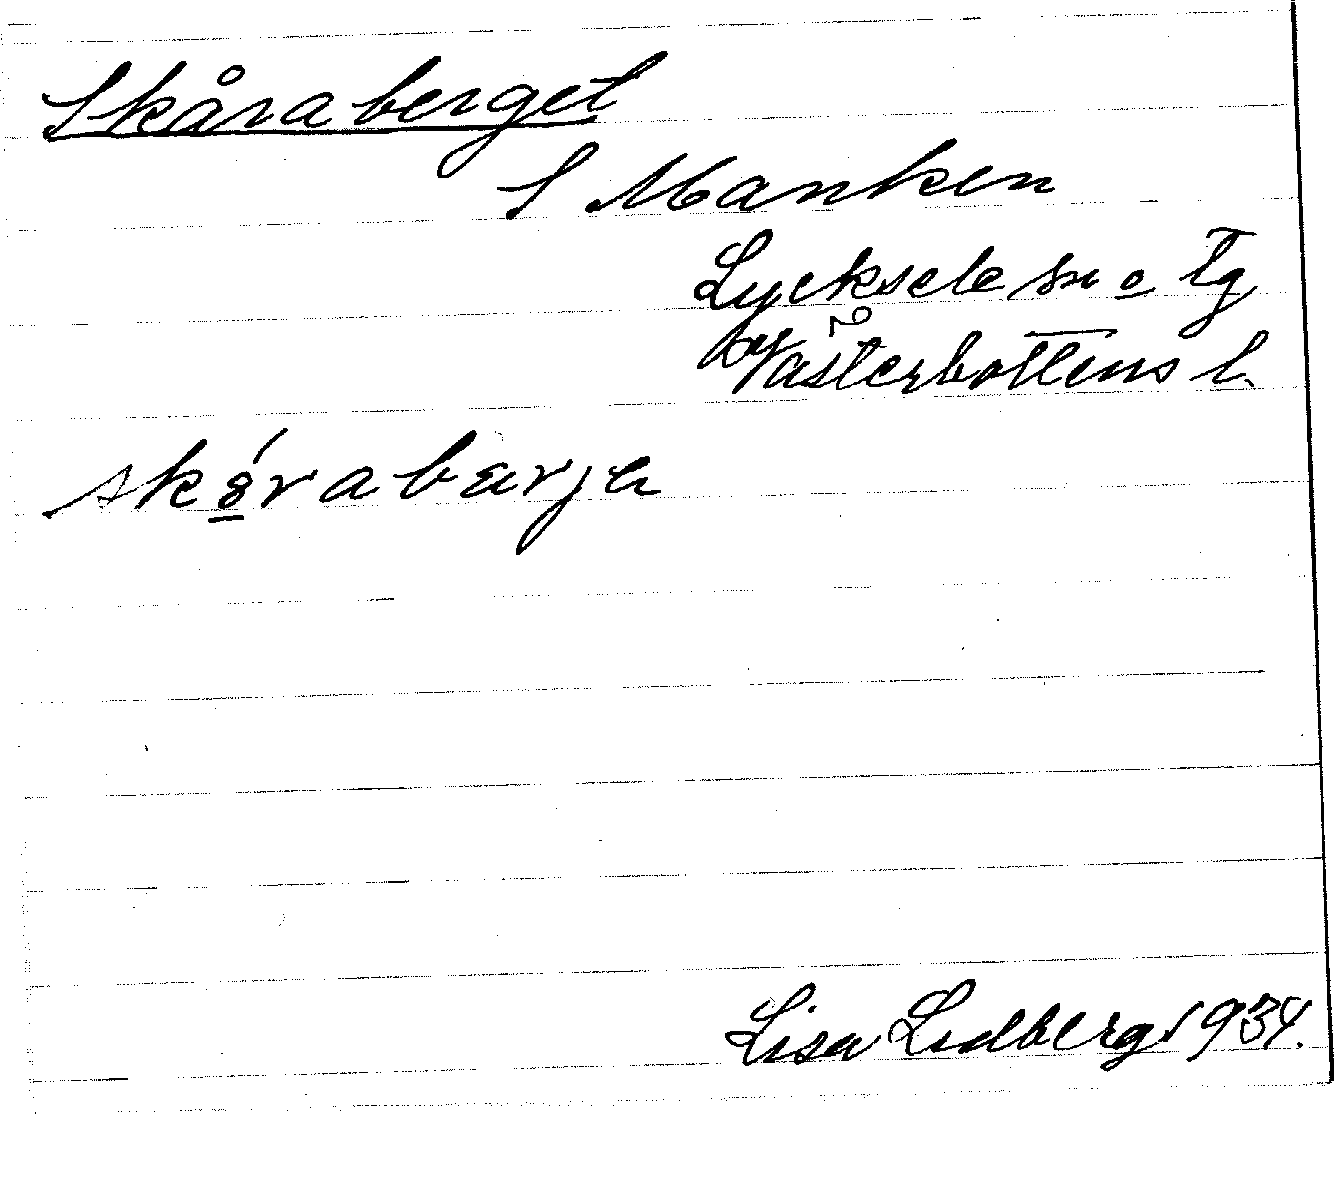 Skåraberget
S Manken
Lycksele sn o tg
Västerbottens l.
Lisa Lidberg 1934.